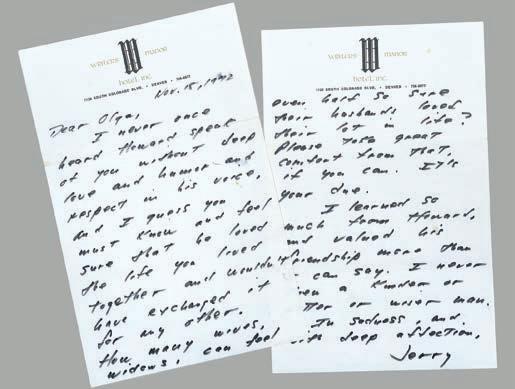 WRITERS MANOR
HOTEL, INC.
1730 SOUTH COLORADO BLVD. • DENVER •
Nov. 15, 1972
Dear Olga,
I never once
heard Howard speak
of you without deep
love and humor and
respect in his voice,
and I guess you
must know and feel
sure that he loved
the life you lived
together and wouldn't
have exchanged it
for any other.
How many wives,
widows, can feel
WRITERS MANOR
HOTEL, INC.
1730 SOUTH COLORADO BLVD. • DENVER •
even half so sure
their husbands loved
their lot in life?
Please take great
comfort from that,
if you can. It's
your due.
I learned so
much from Howard,
nd valued his
friendship more than
can say. I never
a kinder or
or wiser man.
In sadness, and
deep affection,
Jerry